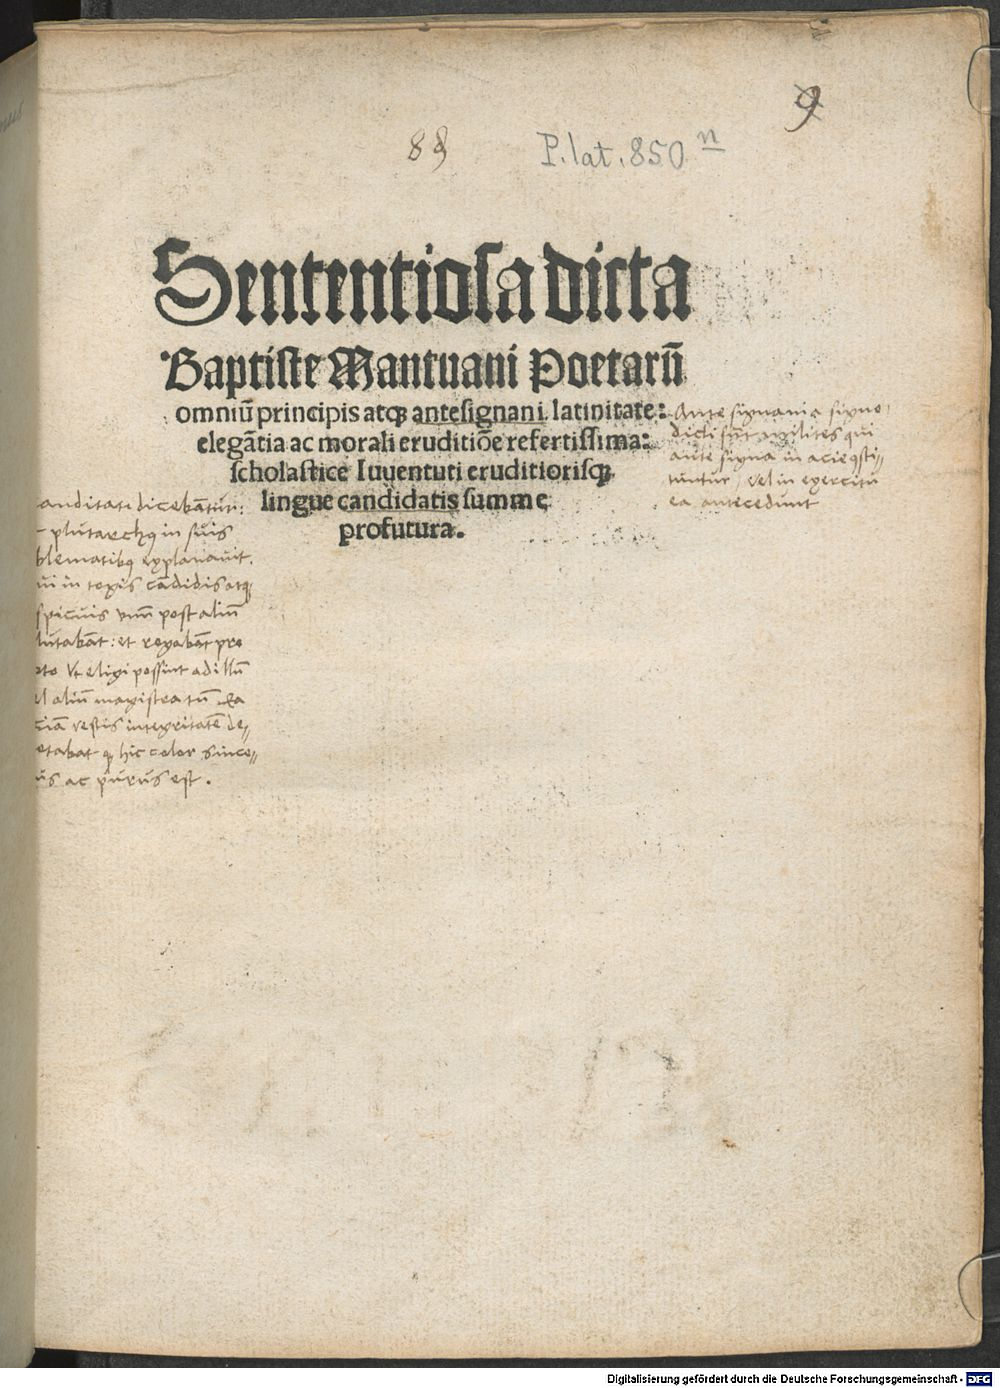 9
89
P. lat. 850 n
Sententiosa dicta
Baptiste Mantuani Poetarū
omniū principis atqꝫ antesignani latinitate:
elegātia ac morali eruditiōe refertissima:
scholastice Iuuentuti eruditiorisqꝫ
lingue candidatis summe
profutura.
Ante signani a signo
dicti sūt milites qui
ante signa in acie ꝯsti⸗
tuntur / vel in exercitu
ea antecedunt
anditati dicebātur:
plutarchꝰ in suis
blematibꝰ explanauit.
ui in togis cādidis atqꝫ
spicuis vnū post aliū
lutabāt: et rogabāt pro
to vt eligi possint ad illū
el aliū magistratū
ciā vestis integritatē de⸗
etabat qꝫ hic color since⸗
us ac purus est.
Digitalisierung gefördert durch die Deutsche Forschungsgemeinschaft - DFG